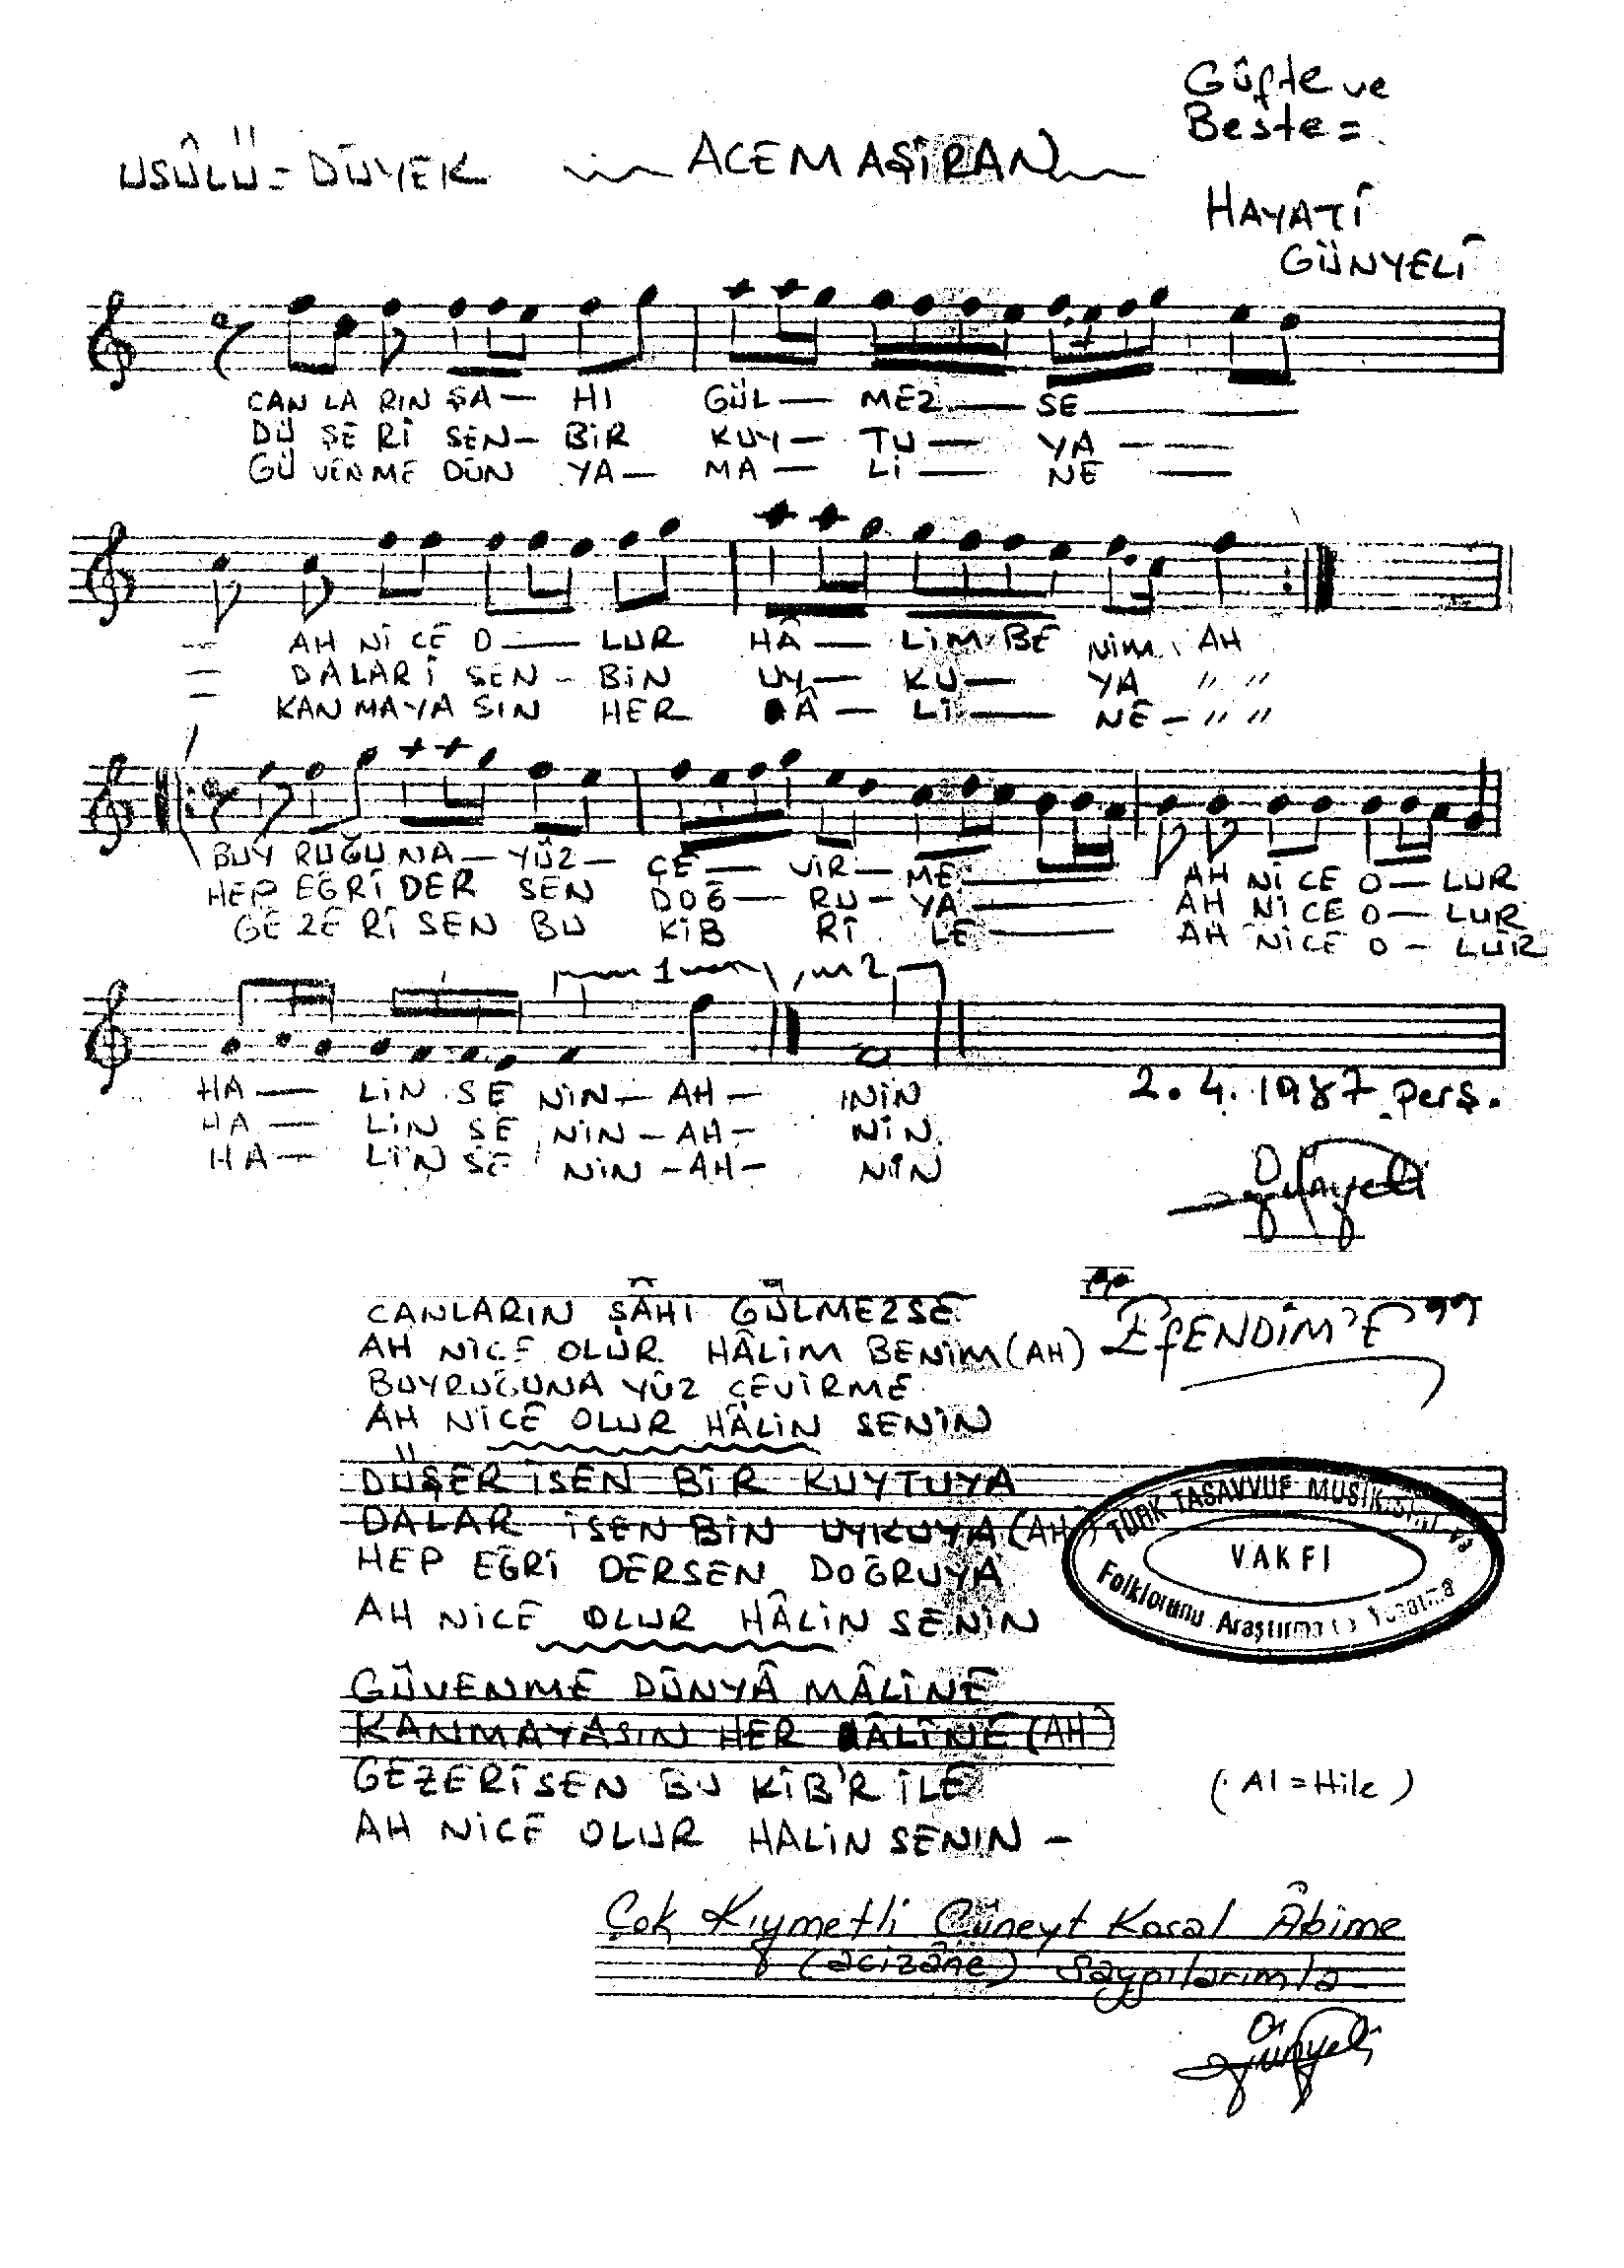 Güfte ve
Beste =
USÛLÜ = DÜYEK ACEMAŞİRAN
HAYATİ
GÜNYELİ
CAN LA RIN ŞA — HI GÜL — MEZ — SE —
DÜ ŞE Rİ SEN — BİR KUY — TU — YA —
GÜ VEN ME DÜN YA — MA — Lİ — NE —
— AH Nİ CE O — LUR HÂ — LİM BE NİM AH
— DALAR İ SEN - BİN UY — KU — YA " "
— KAN MA YA SIN HER Â — Lİ — NE — " "
BUY RUĞU NA — YÜZ — ÇE — VİR — ME — AH Nİ CE O — LUR
HEP EĞRİ DER SEN DOĞ — RU — YA — AH Nİ CE O — LUR
GE ZE Rİ SEN BU KİB Rİ LE — AH NİCE O — LUR
1 2
HA — LİN SE NİN — AH — NİN
HA — LİN SE NİN — AH — NİN
HA — LİN SE NİN — AH — NİN
2.4.1987 Perş.
Günyeli
CANLARIN ŞÂHI GÜLMEZSE
AH NİCE OLUR HÂLİM BENİM (AH) "EfENDİM'E"
BUYRUĞUNA YÜZ ÇEVİRME
AH NİCE OLUR HÂLİN SENİN
DÜŞER İSEN BİR KUYTUYA
DALAR İSEN BİN UYKUYA (AH)
HEP EĞRİ DERSEN DOĞRUYA
AH NİCE OLUR HÂLİN SENİN
TÜRK TASAVVUF MUSIKISINI ve
VAKFI
Folklorunu Araştırma ve Yaşatma
GÜVENME DÜNYÂ MÂLİNE
KANMAYASIN HER ÂLİNE (AH)
GEZERİSEN BU KİB'R İLE (Al = Hile)
AH NİCE OLUR HALİN SENİN —
Çok Kıymetli Cüneyt Kosal Âbime
(âcizâne) Saygılarımla
Günyeli